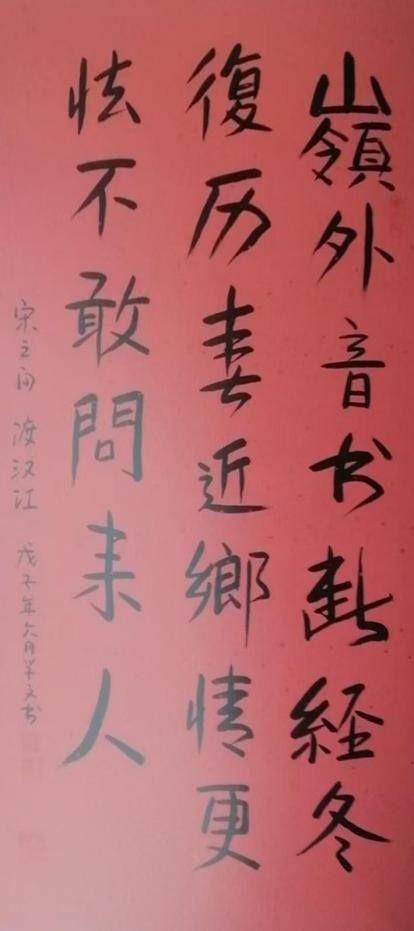 嶺外音书斷經冬
復历春近鄉情更
怯不敢問来人
宋之问 渡汉江 戊子年六月学文书